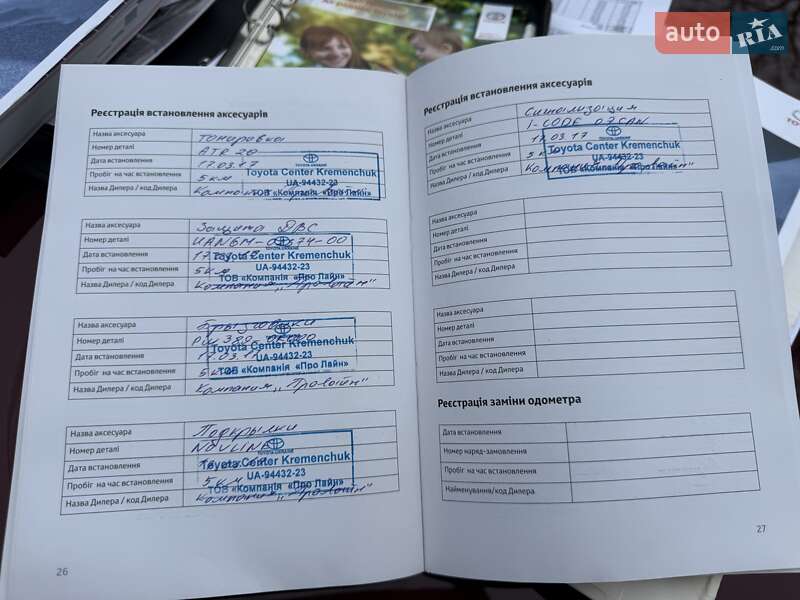 auto RIA.com
Реєстрація встановлення аксесуарів
Назва аксесуара Тонировка
Номер деталі ATR 20
Дата встановлення 17.03.17
Пробіг на час встановлення 5 км
Назва Дилера / код Дилера
TOYOTA UKRAINE
Toyota Center Kremenchuk
UA-94432-23
ТОВ «Компанія «Про Лайн»
Назва аксесуара Защита ДВС
Номер деталі
Дата встановлення
Пробіг на час встановлення 5 км
Назва Дилера / код Дилера Компания „Пролайн"
TOYOTA UKRAINE
Toyota Center Kremenchuk
UA-94432-23
ТОВ «Компанія «Про Лайн»
Назва аксесуара Брызговики
Номер деталі
Дата встановлення 17.03.17
Пробіг на час встановлення 5 км
Назва Дилера / код Дилера Компания „Пролайн"
Toyota Center Kremenchuk
UA-94432-23
ТОВ «Компанія «Про Лайн»
Назва аксесуара Подкрылки
Номер деталі NOVLINE
Дата встановлення
Пробіг на час встановлення 5 км
Назва Дилера / код Дилера Компания „Пролайн"
TOYOTA UKRAINE
Toyota Center Kremenchuk
UA-94432-23
ТОВ «Компанія «Про Лайн»
26
Реєстрація встановлення аксесуарів
Назва аксесуара Сигнализация
Номер деталі I-CODE
Дата встановлення 17.03.17
Пробіг на час встановлення
Назва Дилера / код Дилера
TOYOTA UKRAINE
Toyota Center Kremenchuk
UA-94432-23
ТОВ «Компанія «Про Лайн»
Назва аксесуара
Номер деталі
Дата встановлення
Пробіг на час встановлення
Назва Дилера / код Дилера
Назва аксесуара
Номер деталі
Дата встановлення
Пробіг на час встановлення
Назва Дилера / код Дилера
Реєстрація заміни одометра
Дата встановлення
Номер наряд-замовлення
Пробіг на час встановлення
Найменування/код Дилера
27